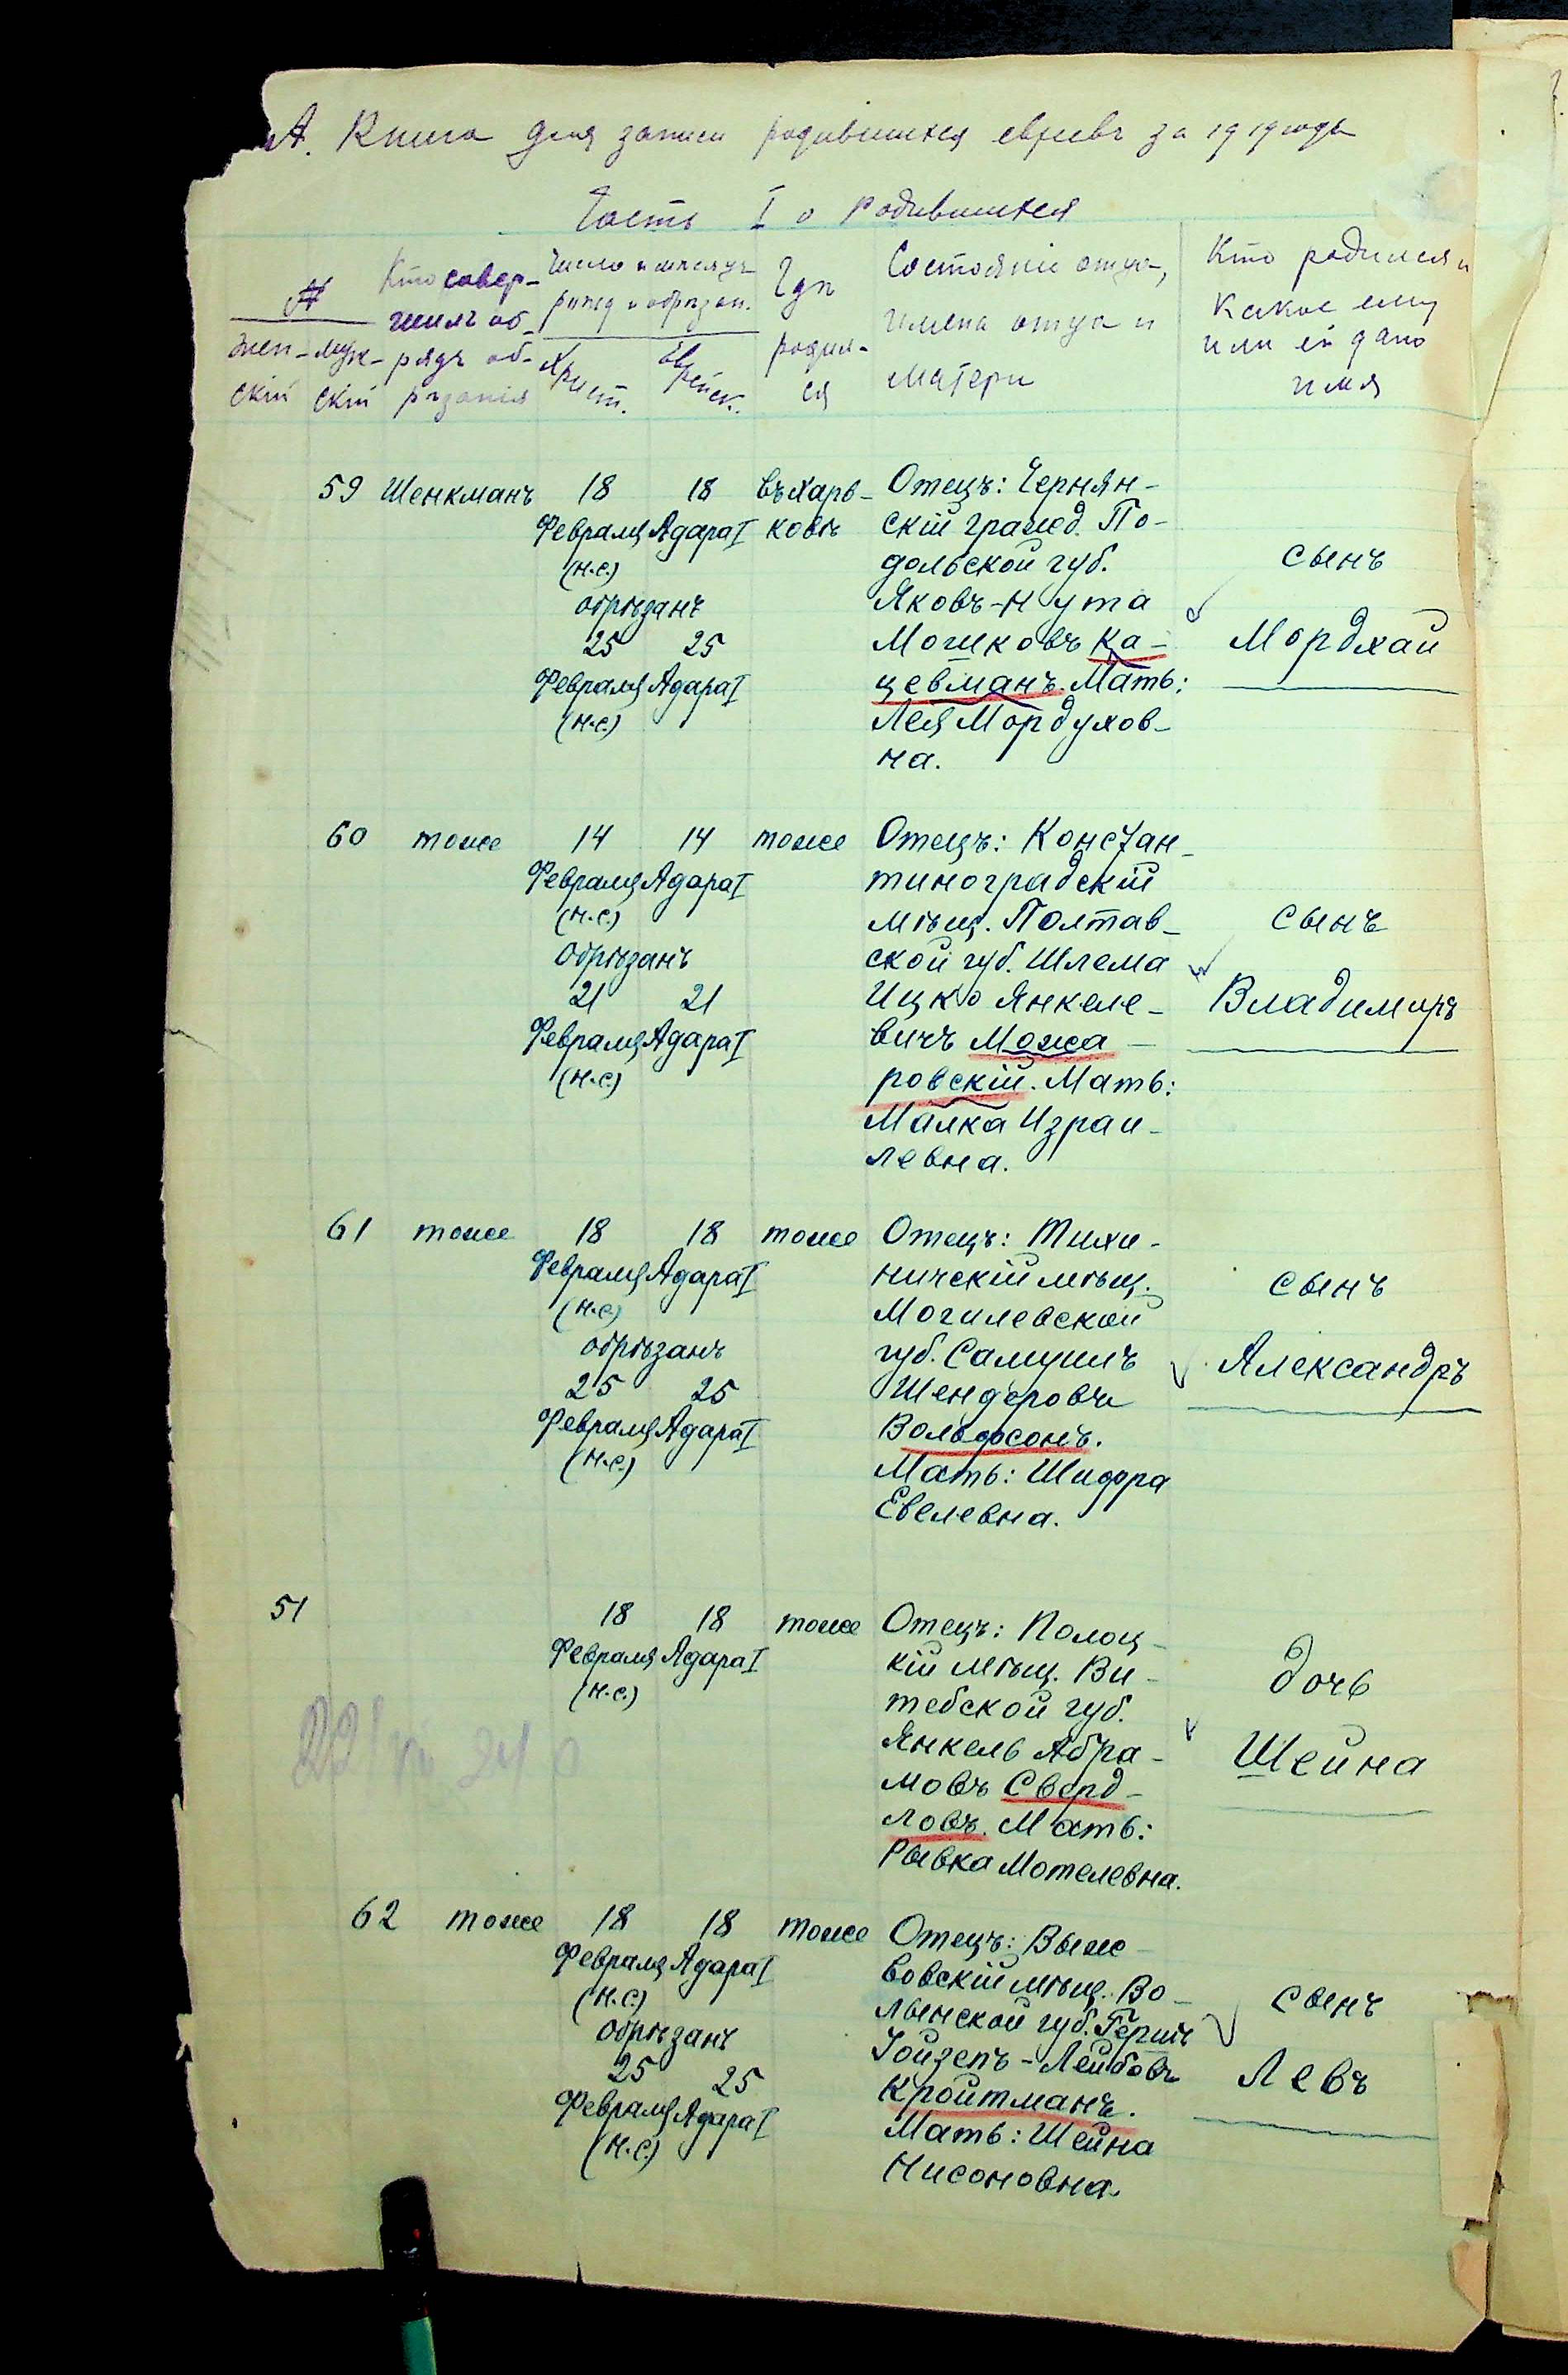 А. Книга для записи родившихся евреевъ за 1919 годъ
Часть I о родившихся
№
жен-
скій
муж-
скій
Кто совер-
шилъ об-
рядъ об-
рѣзанія
Число и мѣсяцъ
рожд. и обрѣзан.
Христ.
Еврейск.
Гдѣ
родил-
ся
Состояніе отца,
имена отца и
матери
Кто родился и
какое ему
или ей дано
имя
59
Шенкманъ
18 18
Февраля Адара I
(н.с.)
обрѣзанъ
25 25
Февраля Адара I
(н.с.)
въ Харь-
ковѣ
Отецъ: Чернян-
скій гражд. По-
дольской губ.
Яковъ-Нута
Мошковъ Ка-
цевманъ. Мать:
Лея Мордухов-
на.
сынъ
Мордхай
60
тоже
14 14
Февраля Адара I
(н.с.)
Обрѣзанъ
21 21
Февраля Адара I
(н.с.)
тоже
Отецъ: Констан-
тиноградскій
мѣщ. Полтав-
ской губ. Шлема
Ицко Янкеле-
вичъ Можа-
ровскій. Мать:
Малка Израи-
левна.
сынъ
Владимиръ
61
тоже
18 18
Февраля Адара I
(н.с.)
обрѣзанъ
25 25
Февраля Адара I
(н.с.)
тоже
Отецъ: Тихи-
ничскій мѣщ.
Могилевской
губ. Самуилъ
Шендеровъ
Вольфсонъ.
Мать: Шифра
Евелевна.
сынъ
Александръ
51
18 18
Февраля Адара I
(н.с.)
тоже
Отецъ: Полоц-
кій мѣщ. Ви-
тебской губ.
Янкель Абра-
мовъ Сверд-
ловъ. Мать:
Рывка Мотелевна.
дочь
Шейна
62
тоже
18 18
Февраля Адара I
(н.с.)
Обрѣзанъ
25 25
Февраля Адара I
(н.с.)
тоже
Отецъ: Выж-
вовскій мѣщ. Во-
лынской губ. Гершъ
Іойзепъ-Лейбовъ
Кройтманъ.
Мать: Шейна
Нисоновна.
сынъ
Левъ